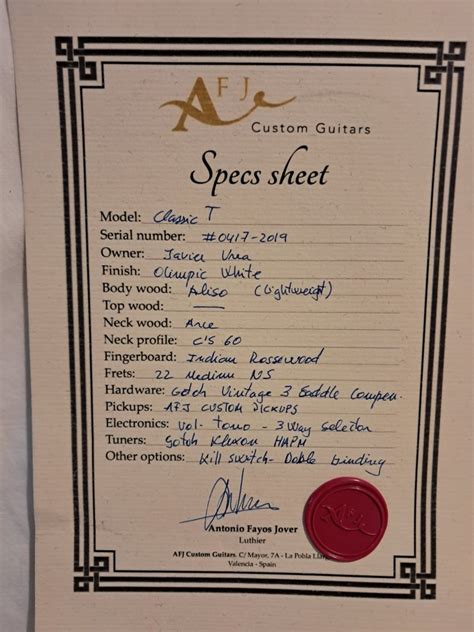 AFJ
Custom Guitars
Specs sheet
Model: Classic T
Serial number: #0417-2019
Owner: Javier Urea
Finish: Olimpic White
Body wood: Aliso (Lightweight)
Top wood: —
Neck wood: Arce
Neck profile: C'S 60
Fingerboard: Indian Rossewood
Frets: 22 Medium NS
Hardware: Gotoh Vintage 3 Saddle Compen.
Pickups: AFJ CUSTOM PICKUPS
Electronics: Vol - tono - 3 Way selector
Tuners: Gotoh Kluson HAPM
Other options: Kill switch - Doble binding
Antonio Fayos Jover
Luthier
AFJ Custom Guitars. C/ Mayor, 7A - La Pobla
Valencia - Spain
AFJ